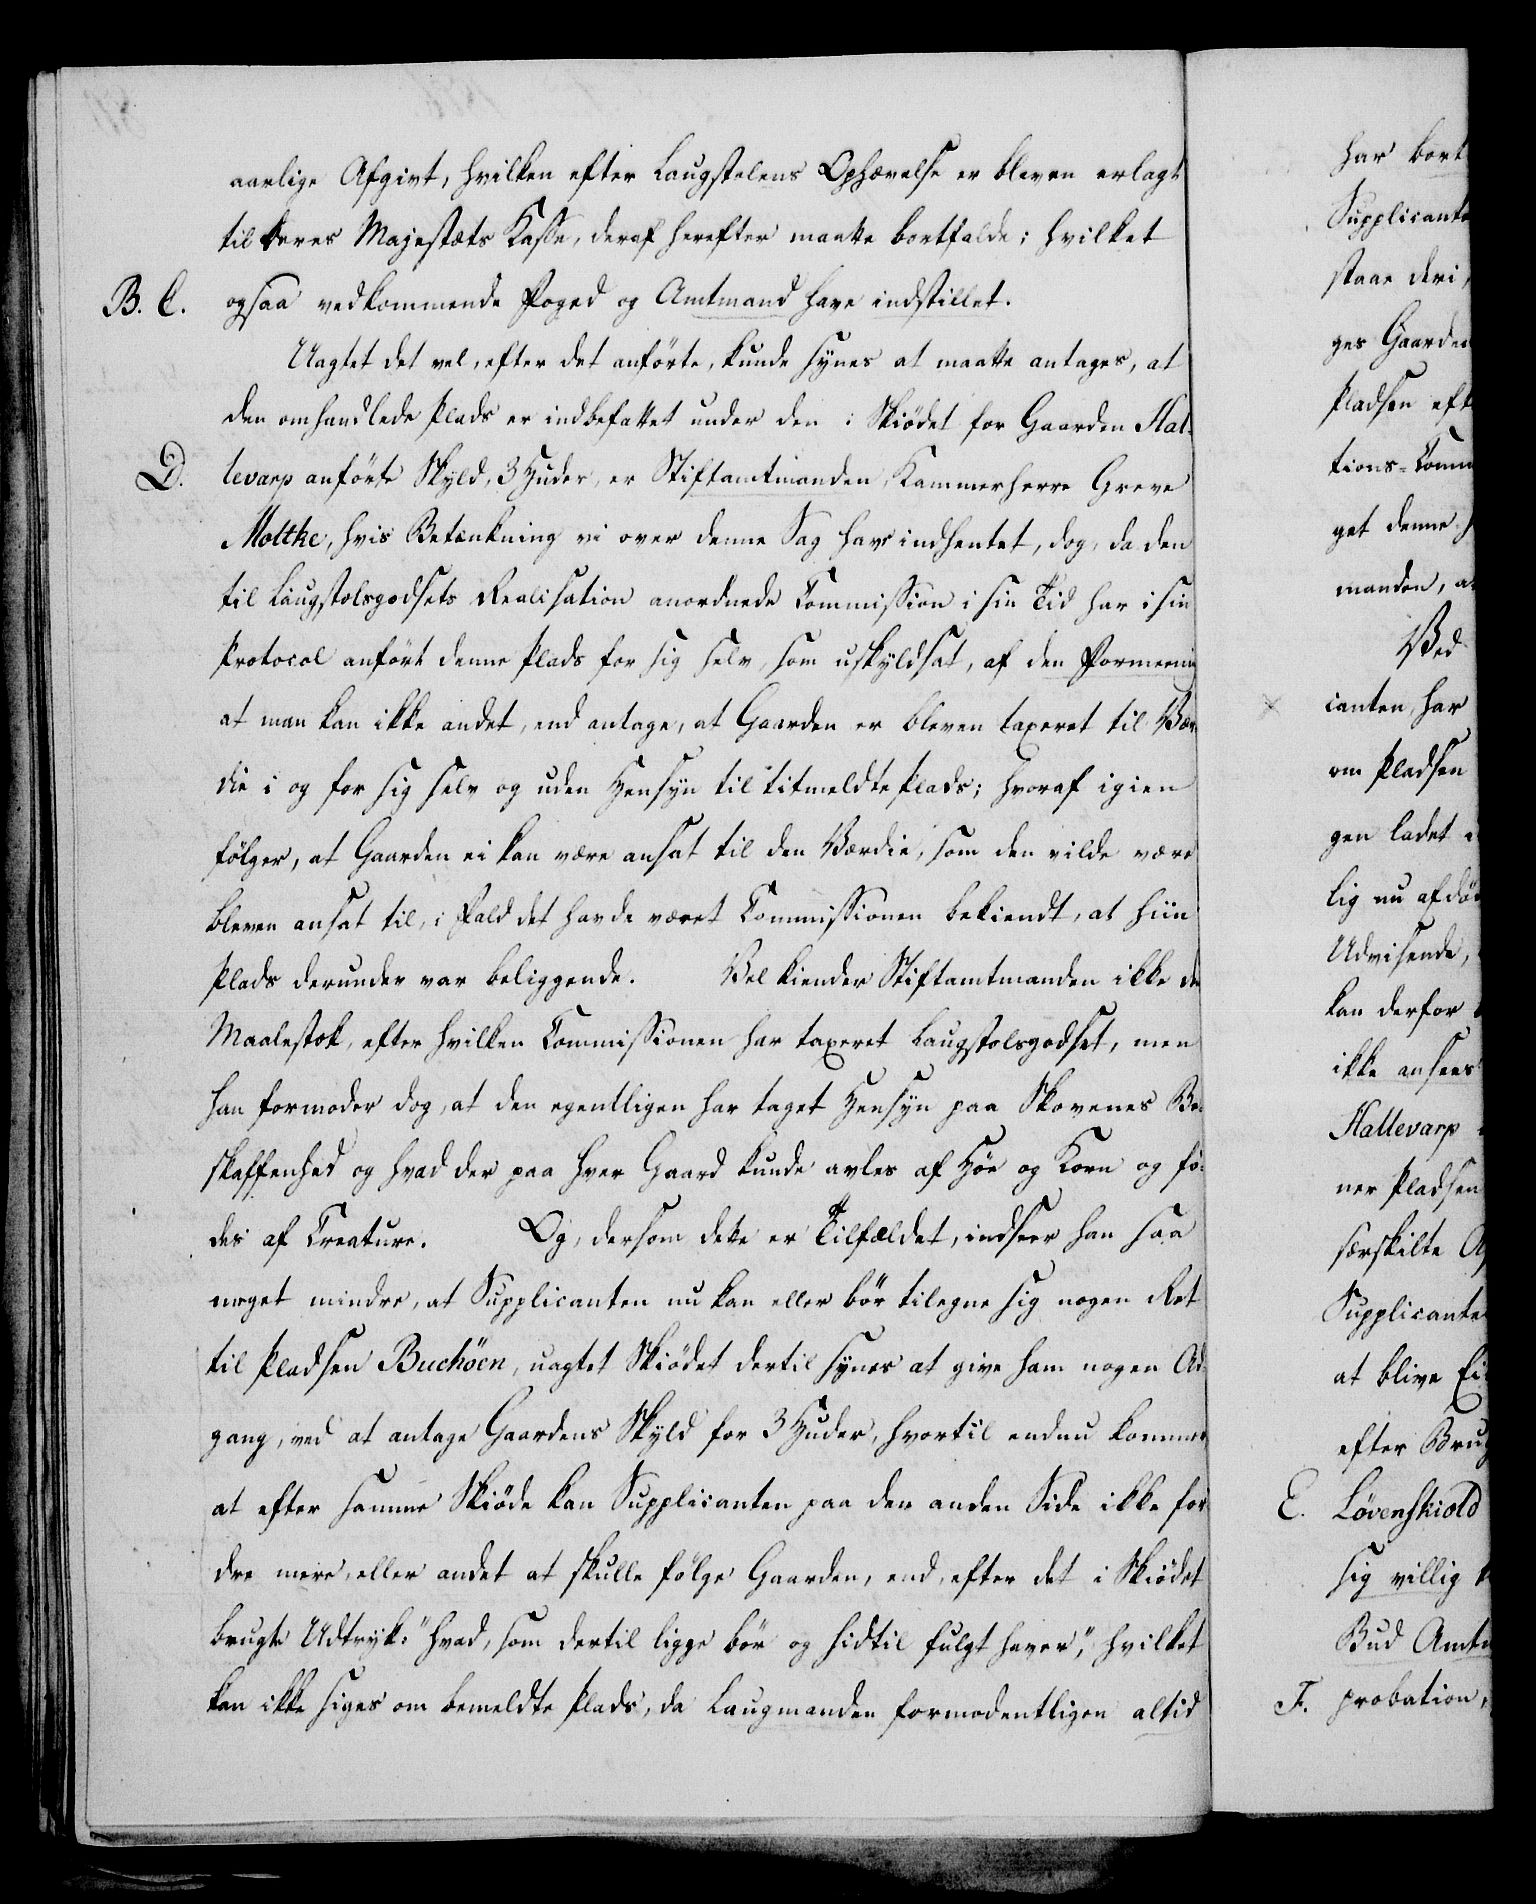 aarlige Afgivt, hvilken efter Laugstolens Ophævelse er bleven erlagt
til deres Majestæts Kasse, deraf herefter maatte bortfalde; hvilket
B. C. ogsaa vedkommende Foged og Amtmand have indstillet.
Uagtet det vel, efter det anförte, kunde synes at maatte antages, at
den omhandlede Plads er indbefattet under den i Skiödet for Gaarden Hal-
D. levarp anförte Skyld, 3 Huder, er Stiftamtmanden, Kammerherre Greve
Moltke, hvis Betænkning vi over denne Sag have indhentet, dog, da den
til Laugstolsgodsets Realisation anordnede Commission i sin Tid har i sin
Protocol anfört denne Plads for sig selv, som uskyldsat, af den Formening
at man kan ikke andet, end antage, at Gaarden er bleven taxeret til Vær-
die i og for sig selv og uden Hensyn til titmeldte Plads; hvoraf igien
fölger, at Gaarden ei kan være ansat til den Værdie, som den vilde være
bleven ansat til, i Fald det havde været Commissionen bekiendt, at hiin
Plads derunder var beliggende. Vel kiender Stiftamtmanden ikke den
Maalestok, efter hvilken Commissionen har taxeret Laugstolsgodset, men
han formoder dog, at den egentligen har taget Hensyn paa Skovenes Be-
skaffenhed og hvad der paa hver Gaard kunde avles af Höe og Korn og fö-
des af Creature. Og, dersom dette er Tilfældet, indseer han saa
meget mindre, at Supplicanten nu kan eller bör tilegne sig nogen Ret
til Pladsen Buchöen, uagtet Skiödet dertil synes at give ham nogen Ad-
gang, ved at antage Gaardens Skyld for 3 Huder, hvortil endnu kommer,
at efter samme Skiöde kan Supplicanten paa den anden Side ikke for-
dre mere, eller andet at skulle fölge Gaarden, end, efter det i Skiödet
brugte Udtryk: "hvad, som dertil ligge bör og hidtil fulgt haver", hvilket
kan ikke siges om bemeldte Plads, da Laugmanden formodentligen altid
har bort
Supplicante
staae deri,
ges Gaarden
Pladsen eft
tions-Comm
get denne
manden, a
Ved
canten, har
om Pladsen
gen ladet
lig nu afdö
Udvisende,
kan derfor
ikke ansees
Hallevarp
ner Pladsen
særskilte
Supplicante
at blive Ei
efter Brug
E. Lövenskiold
sig villig
Bud Amt
F. probation,